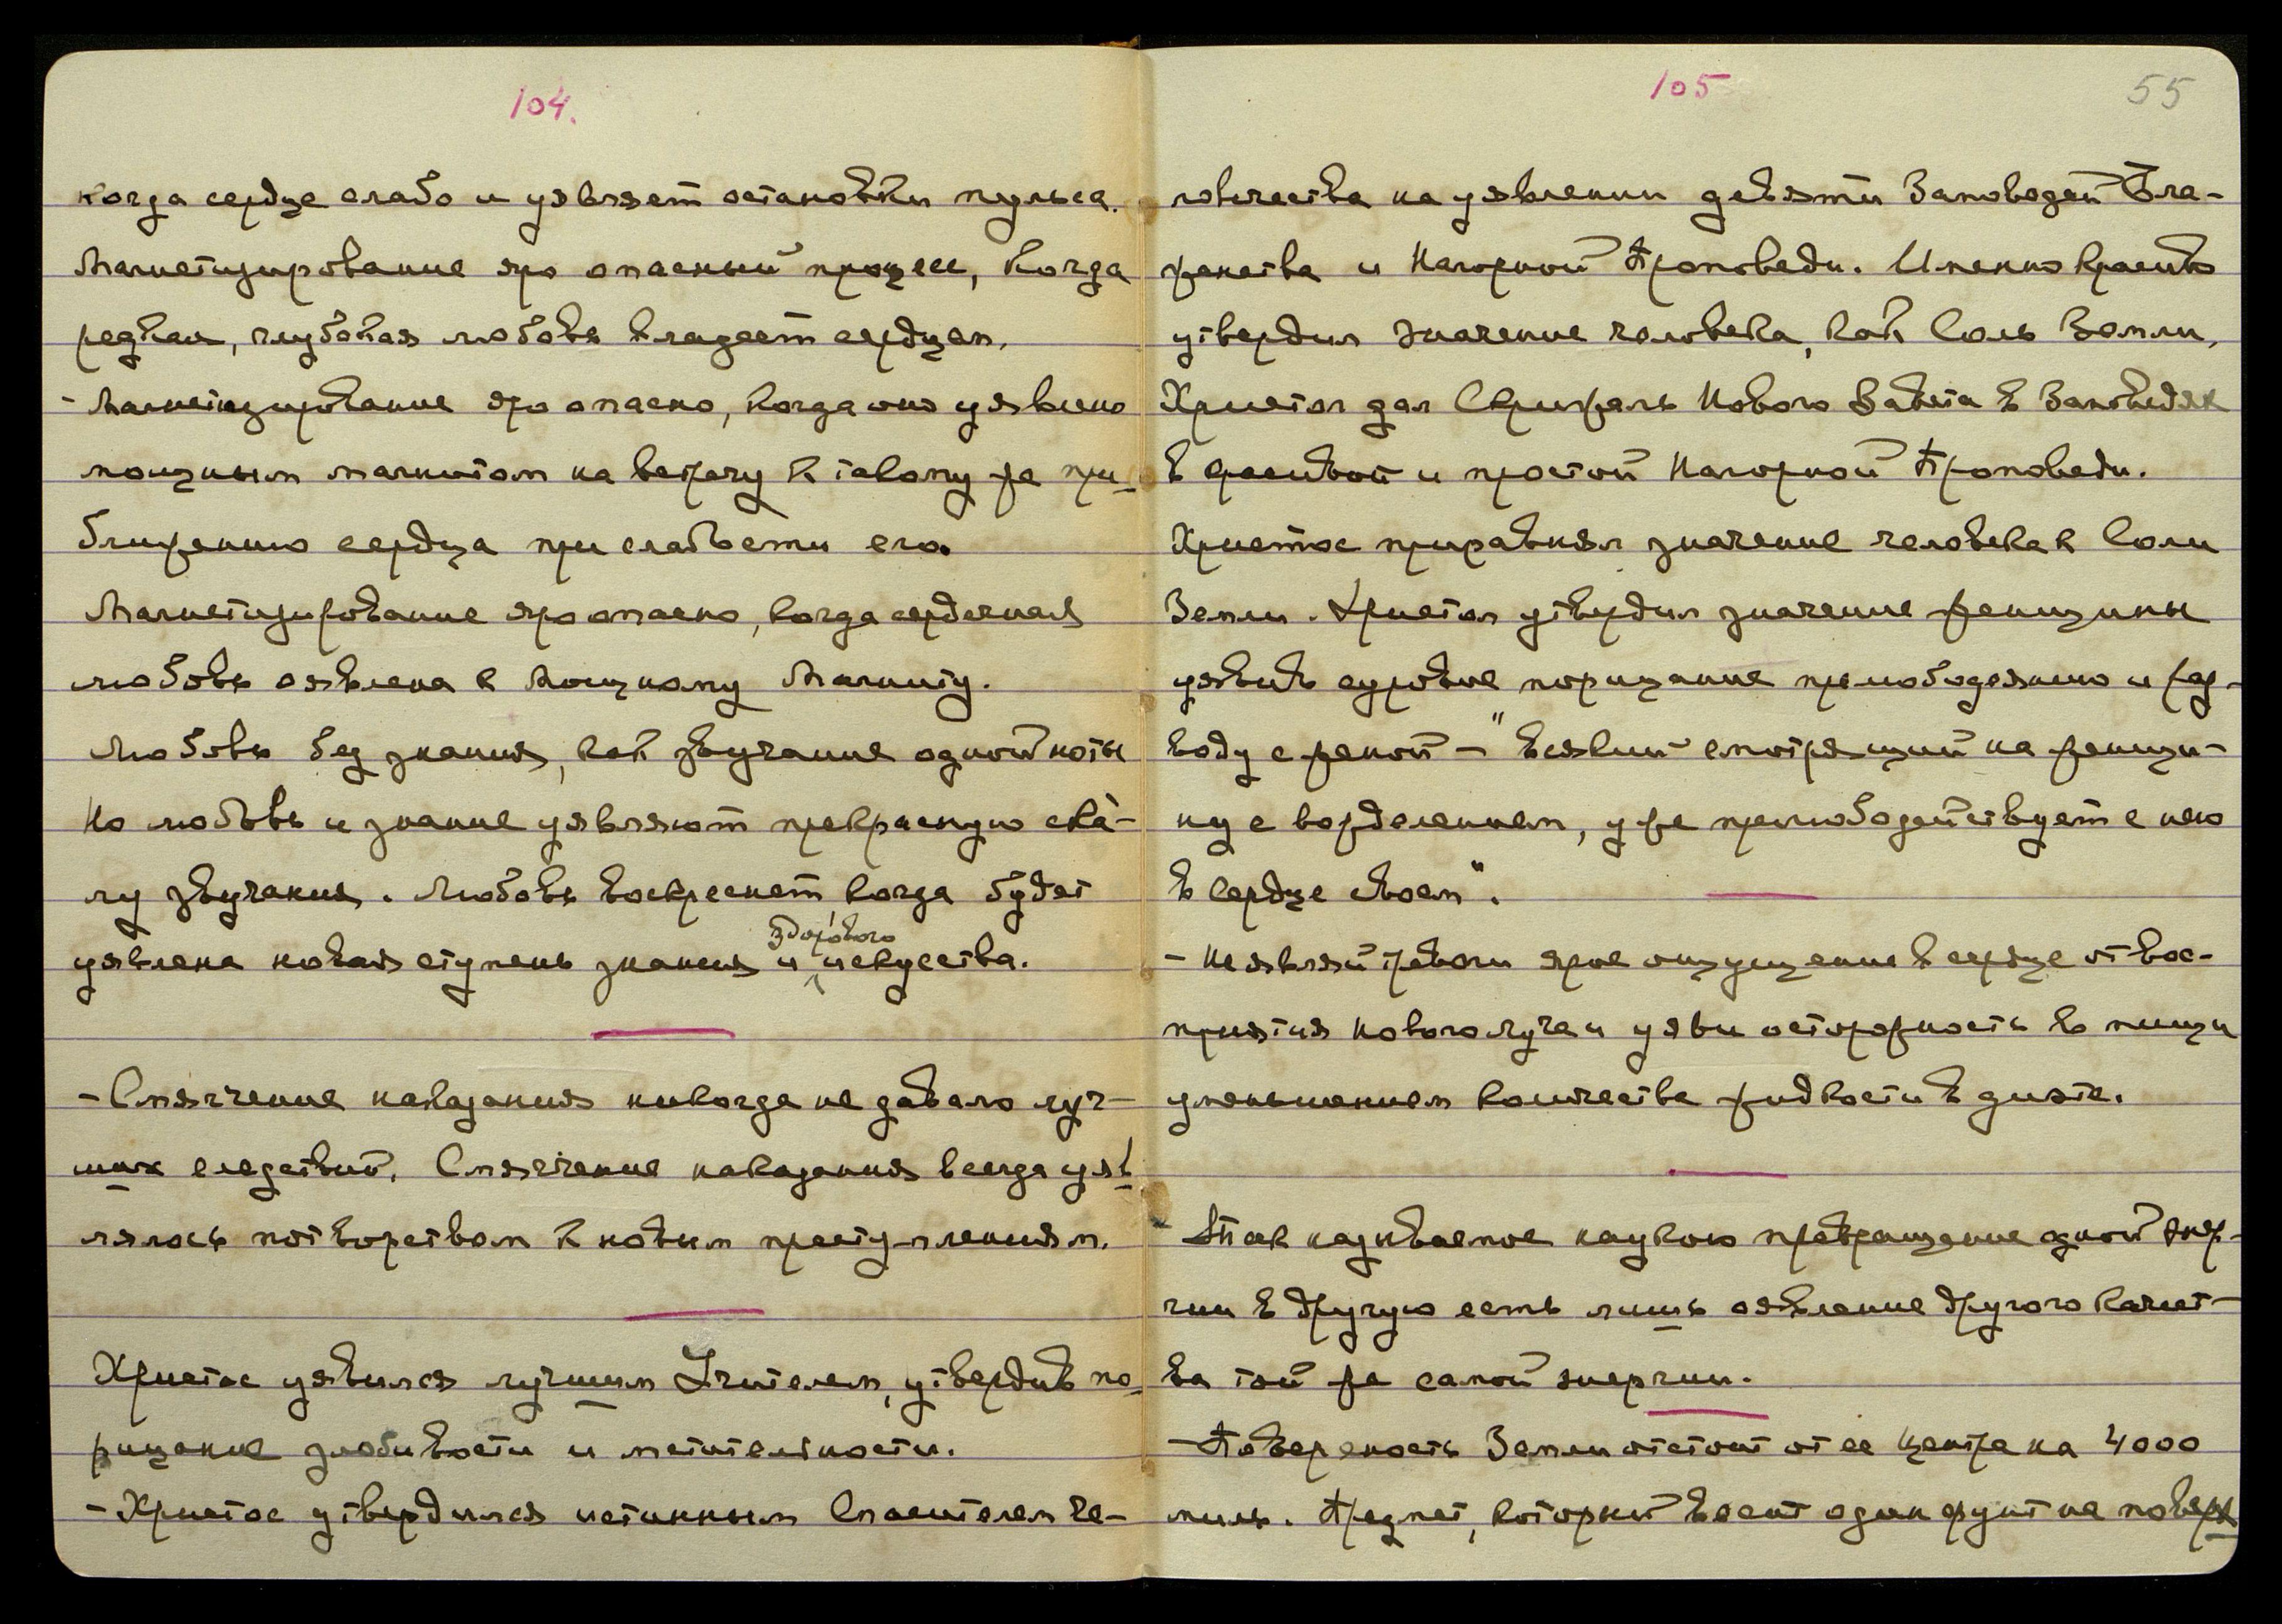 104.
когда сердце слабо и уявляет остановки пульса.
Магнетизирование яро опасный процесс, когда
редкая, глубокая любовь владеет сердцем.
- Магнетизирование яро опасно, когда оно уявлено
мощным магнитом на встречу к такому же при-
ближению сердца при слабости его.
Магнетизирование яро опасно, когда сердечная
любовь оявлена к мощному Магниту.
Любовь без знания, как звучание одной ноты
Но любовь и знание уявляют прекрасную ска-
лу звучания. Любовь воскреснет, когда будет
уявлена новая ступень знания и здорового искусства.
- Смягчение наказания никогда не давало луч-
ших следствий. Смягчение наказания всегда уяв-
лялось потворством к новым преступлениям.
Христос уявился лучшим Учителем, утвердив по-
рицание злобивости и мстительности.
- Христос утвердился истинным Спасителем че-
105
55
ловечества на уявлении девяти Заповедей Бла-
женства и Нагорной Проповеди. Именно красиво
утвердил значение человека, как Соль Земли.
Христос дал Скрижаль Нового Завета в Заповедях
в красивой и простой Нагорной Проповеди.
Христос приравнял значение человека к Соли
Земли. Христос утвердил значение женщины
уявив суровое порицание прелюбодеянию и раз-
воду с женой – "всякий смотрящий на женщи-
ну с вожделением, уже прелюбодействует с нею
в сердце своем".
- Не являй тревоги ярое ощущение в сердце от вос-
приятия нового луча и уяви осторожность в пищи
уменьшением количества жидкости в диэте.
- Так называемое наукою превращение одной энер-
гии в другую есть лишь оявление другого качест-
ва той же самой энергии.
- Поверхность Земли отстоит от ее центра на 4000
миль. Предмет, который весит один фунт на поверх-